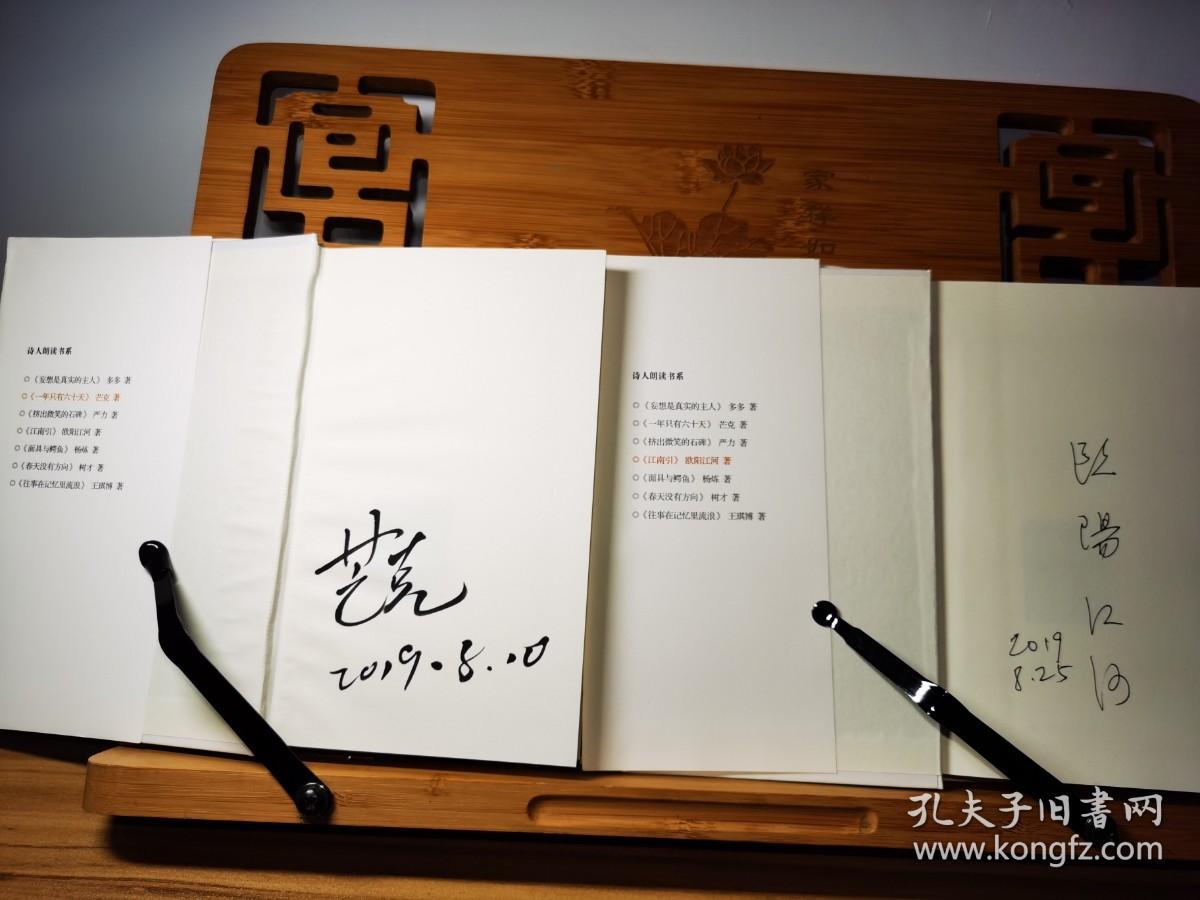 家祥如
诗人朗读书系
《妄想是真实的主人》 多多 著
《一年只有六十天》 芒克 著
《挤出微笑的石碑》 严力 著
《江南引》 欧阳江河 著
《面具与鳄鱼》 杨炼 著
《春天没有方向》 树才 著
《往事在记忆里流浪》 王琪博 著
芒克
2019.8.10
诗人朗读书系
《妄想是真实的主人》 多多 著
《一年只有六十天》 芒克 著
《挤出微笑的石碑》 严力 著
《江南引》 欧阳江河 著
《面具与鳄鱼》 杨炼 著
《春天没有方向》 树才 著
《往事在记忆里流浪》 王琪博 著
欧陽江河
2019
8.25
孔夫子旧书网
www.kongfz.com